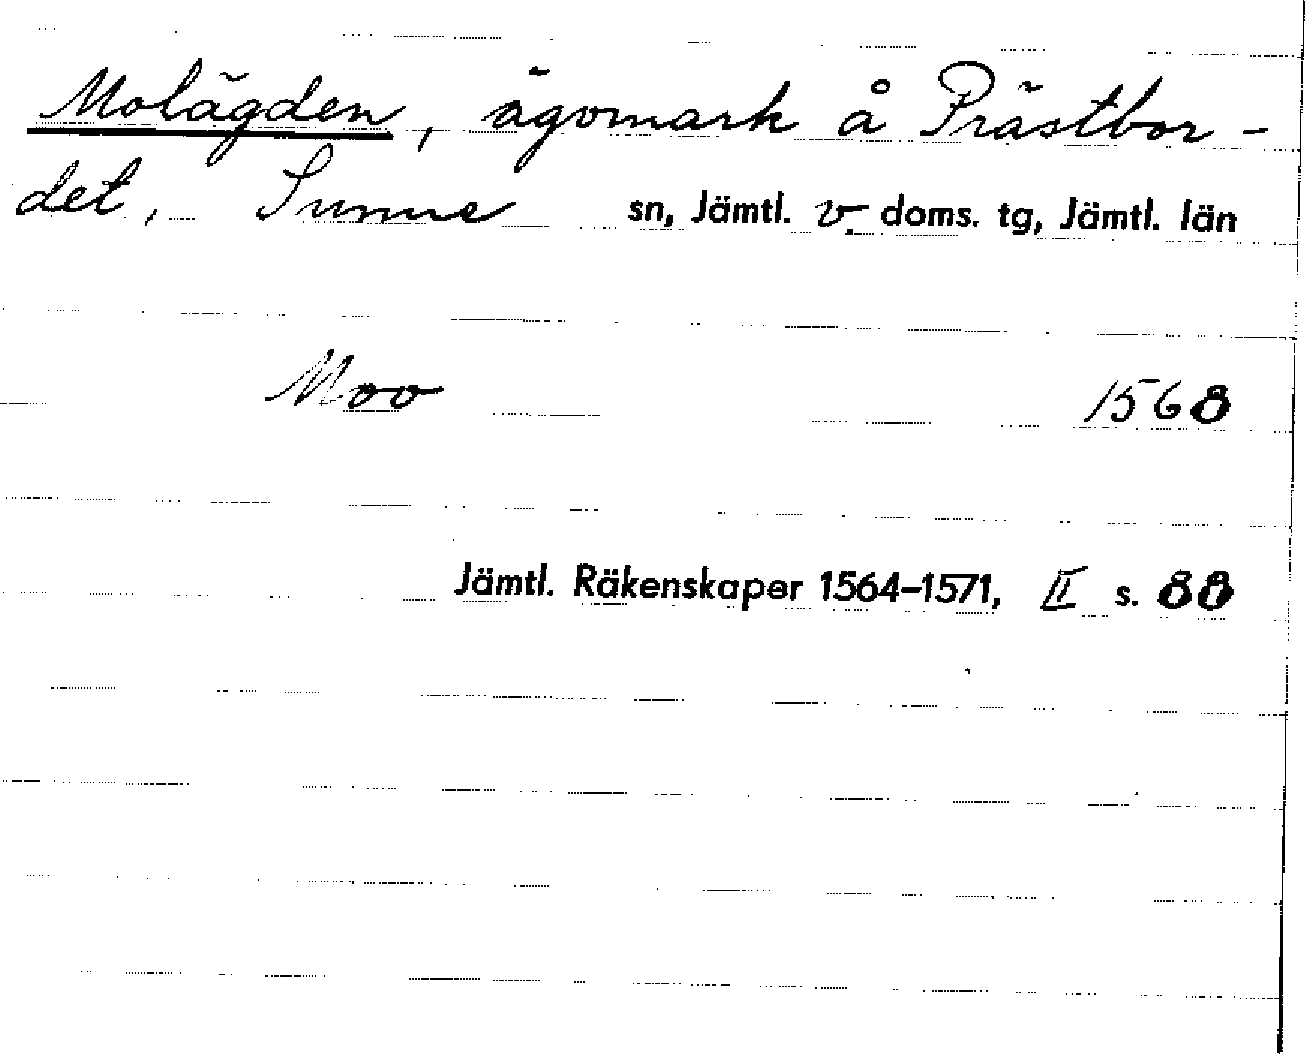 Molägden, ägomark å Prästbor-
det, Sunne sn, Jämtl. v. doms. tg, Jämtl. län
Moo 1568
Jämtl. Räkenskaper 1564–1571, II s. 88